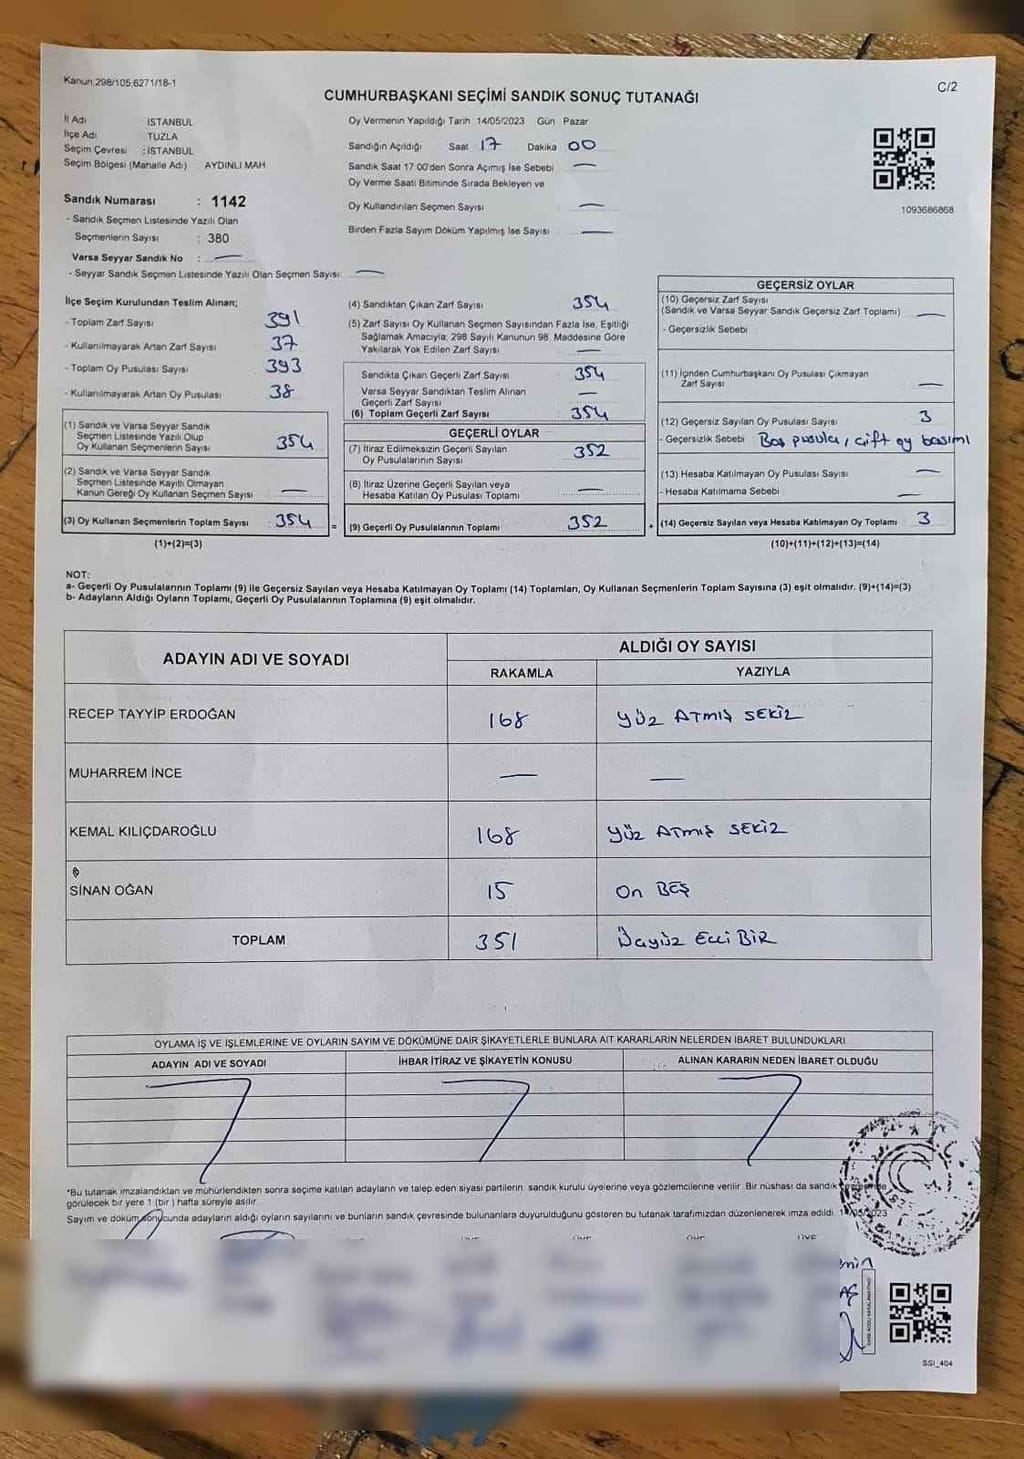 Kanun:298/105,6271/18-1
C/2
CUMHURBAŞKANI SEÇİMİ SANDIK SONUÇ TUTANAĞI
İl Adı İSTANBUL
İlçe Adı TUZLA
Seçim Çevresi : İSTANBUL
Seçim Bölgesi (Mahalle Adı) AYDINLI MAH
Sandık Numarası : 1142
- Sandık Seçmen Listesinde Yazılı Olan
Seçmenlerin Sayısı : 380
Varsa Seyyar Sandık No : —
- Seyyar Sandık Seçmen Listesinde Yazılı Olan Seçmen Sayısı: —
Oy Vermenin Yapıldığı Tarih 14/05/2023 Gün Pazar
Sandığın Açıldığı Saat 17 Dakika 00
Sandık Saat 17:00'den Sonra Açımış İse Sebebi —
Oy Verme Saati Bitiminde Sırada Bekleyen ve
Oy Kullandırılan Seçmen Sayısı —
Birden Fazla Sayım Döküm Yapılmış İse Sayısı —
1093686868
İlçe Seçim Kurulundan Teslim Alınan;
- Toplam Zarf Sayısı 391
- Kullanılmayarak Artan Zarf Sayısı 37
- Toplam Oy Pusulası Sayısı 393
- Kullanılmayarak Artan Oy Pusulası 38
(1) Sandık ve Varsa Seyyar Sandık
Seçmen Listesinde Yazılı Olup
Oy Kullanan Seçmenlerin Sayısı 354
(2) Sandık ve Varsa Seyyar Sandık
Seçmen Listesinde Kayıtlı Olmayan
Kanun Gereği Oy Kullanan Seçmen Sayısı —
(3) Oy Kullanan Seçmenlerin Toplam Sayısı : 354 =
(1)+(2)=(3)
(4) Sandıktan Çıkan Zarf Sayısı 354
(5) Zarf Sayısı Oy Kullanan Seçmen Sayısından Fazla İse, Eşitliği
Sağlamak Amacıyla; 298 Sayılı Kanunun 98. Maddesine Göre
Yakılarak Yok Edilen Zarf Sayısı —
Sandıkta Çıkan Geçerli Zarf Sayısı 354
Varsa Seyyar Sandıktan Teslim Alınan
Geçerli Zarf Sayısı —
(6) Toplam Geçerli Zarf Sayısı 354
GEÇERLİ OYLAR
(7) İtiraz Edilmeksizin Geçerli Sayılan
Oy Pusulalarının Sayısı 352
(8) İtiraz Üzerine Geçerli Sayılan veya
Hesaba Katılan Oy Pusulası Toplamı —
(9) Geçerli Oy Pusulalarının Toplamı 352 +
GEÇERSİZ OYLAR
(10) Geçersiz Zarf Sayısı
(Sandık ve Varsa Seyyar Sandık Geçersiz Zarf Toplamı) —
- Geçersizlik Sebebi :
(11) İçinden Cumhurbaşkanı Oy Pusulası Çıkmayan
Zarf Sayısı —
(12) Geçersiz Sayılan Oy Pusulası Sayısı 3
- Geçersizlik Sebebi : Boş pusula, çift oy basımı
(13) Hesaba Katılmayan Oy Pusulası Sayısı —
- Hesaba Katılmama Sebebi —
(14) Geçersiz Sayılan veya Hesaba Katılmayan Oy Toplamı 3
(10)+(11)+(12)+(13)=(14)
NOT:
a- Geçerli Oy Pusulalarının Toplamı (9) ile Geçersiz Sayılan veya Hesaba Katılmayan Oy Toplamı (14) Toplamları, Oy Kullanan Seçmenlerin Toplam Sayısına (3) eşit olmalıdır. (9)+(14)=(3)
b- Adayların Aldığı Oyların Toplamı, Geçerli Oy Pusulalarının Toplamına (9) eşit olmalıdır.
ADAYIN ADI VE SOYADI
ALDIĞI OY SAYISI
RAKAMLA YAZIYLA
RECEP TAYYİP ERDOĞAN 168 YÜZ ATMIŞ SEKİZ
MUHARREM İNCE — —
KEMAL KILIÇDAROĞLU 168 YÜZ ATMIŞ SEKİZ
SİNAN OĞAN 15 On BEŞ
TOPLAM 351 Üçyüz ELLİ BİR
OYLAMA İŞ VE İŞLEMLERİNE VE OYLARIN SAYIM VE DÖKÜMÜNE DAİR ŞİKAYETLERLE BUNLARA AİT KARARLARIN NELERDEN İBARET BULUNDUKLARI
ADAYIN ADI VE SOYADI İHBAR İTİRAZ VE ŞİKAYETİN KONUSU ALINAN KARARIN NEDEN İBARET OLDUĞU
*Bu tutanak imzalandıktan ve mühürlendikten sonra seçime katılan adayların ve talep eden siyasi partilerin sandık kurulu üyelerine veya gözlemcilerine verilir. Bir nüshası da sandık
görülecek bir yere 1 (bir) hafta süreyle asılır.
Sayım ve döküm sonucunda adayların aldığı oyların sayılarını ve bunların sandık çevresinde bulunanlara duyurulduğunu gösteren bu tutanak tarafımızdan düzenlenerek imza edildi. 14/05/2023
SSI_404